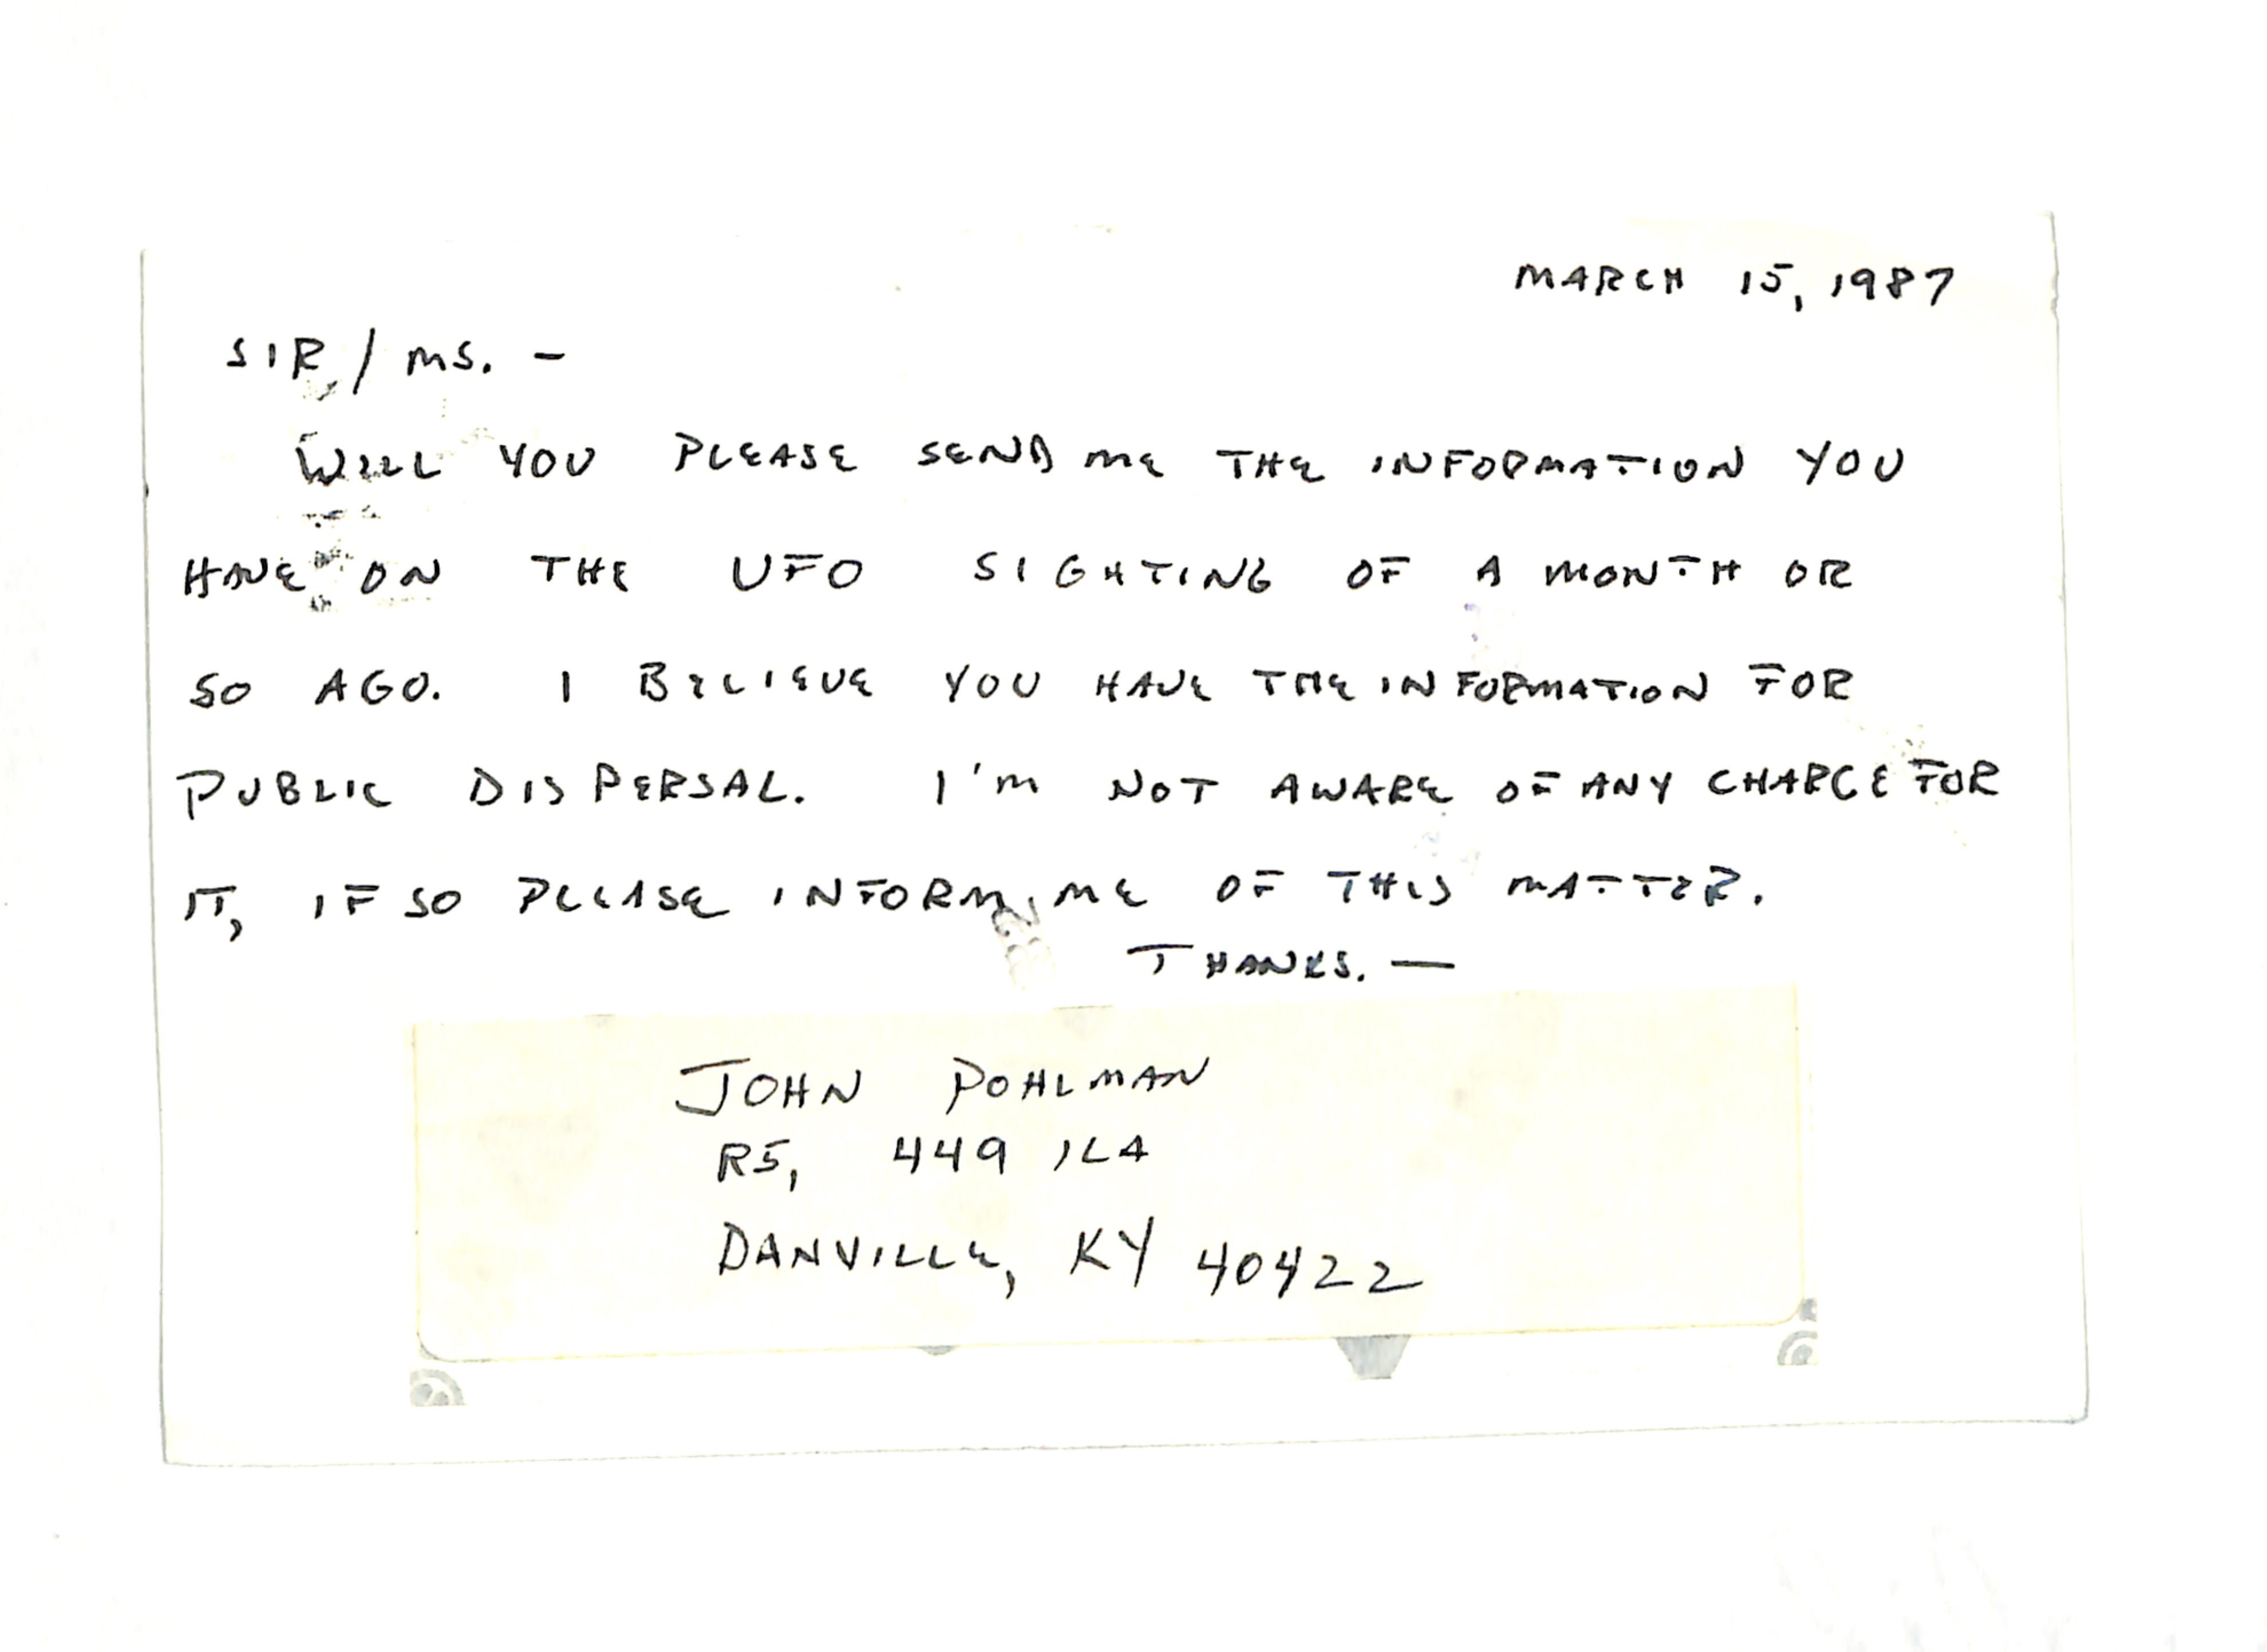 MARCH 15, 1987
SIR / MS. -
WILL YOU PLEASE SEND ME THE INFORMATION YOU
HAVE ON THE UFO SIGHTING OF A MONTH OR
SO AGO. I BELIEVE YOU HAVE THE INFORMATION FOR
PUBLIC DISPERSAL. I'M NOT AWARE OF ANY CHARGE FOR
IT, IF SO PLEASE INFORM ME OF THIS MATTER.
THANKS. —
JOHN POHLMAN
R5, 449 1LA
DANVILLE, KY 40422